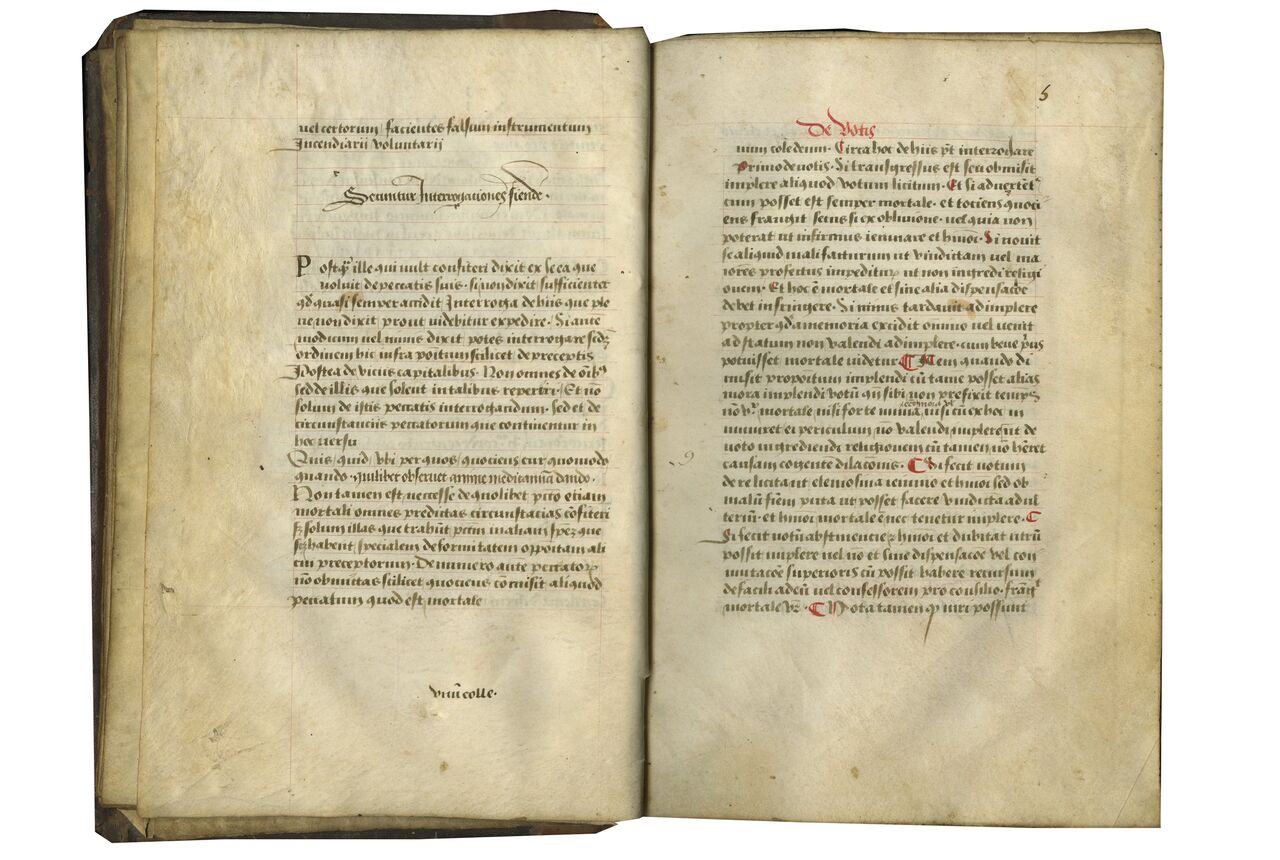 vel certorum facientes falsum instrumentum
Incendiarii voluntarii
Secuntur Interrogaciones fiende.
Postqz ille qui vult confiteri dixit ex se ea que
voluit de peccatis suis. si non dixit sufficienter
qd quasi semper accidit Interroga de hiis que ple
ne non dixit prout videbitur expedire. Si ante
modicum vel nimis dixit potes interrogare scdz
ordinem hic infra positum scilicet de preceptis
Postea de viciis capitalibus. Non omnes de oibz
sed de illis que solent in talibus reperiri. Et no
solum de istis peccatis interrogandum. sed et de
circumstanciis peccatorum que continentur in
hoc versu
Quis, quid, vbi per quos, quociens cur quomodo
quando. quilibet observet anime medicamina dando.
Non tamen est neccesse de quolibet pcto etiam
mortali omnes predictas circumstacias cofiteri
sz solum illas que trahunt pctm in aliam spez que
scz habent specialem deformitatem oppositam ali
cui preceptorum. De numero aute peccatorz
no obmittas scilicet quociens comisit aliquod
peccatum quod est mortale
vnu colle.
5
De Votis
num cole deum. Circa hoc de hiis pt interrogare
Primo de votis. Si transgressus est seu obmisit
implere aliquod votum licitum. Et si
cum posset est semper mortale. et tociens quoci
ens frangit secus si ex oblivione. vel quia non
poterat ut infirmus ieiunare et hmoi. Si novit
se aliquid mali facturum ut vindictam vel ma
iores profectus impeditur ut non ingredi religi
onem. Et hoc e mortale et sine alia dispensacoe
debet infringere. Si nimis tardavit adimplere
propter qd a memoria excidit omnino vel venit
ad statum non valendi adimplere. cum bene prius
potuisset mortale videtur Item quando di
misit propositum implendi cu tame posset alias
mora implendi votu qn sibi non prefixit temps
no vr mortale nisi forte nimia, nisi cu ex hoc in
mineret ei periculum no valendi implere ut de
voto ingrediendi religionem cu tamen no heret
causam cogente dilacionis. Si fecit votum
de re licita ut elemosina ieiunio et hmoi sed ob
malu fiem puta ut posset facere vindicta adul
teriu. et hmoi mortale e nec tenetur implere.
Si fecit votu abstinencie et hmoi et dubitat utru
possit implere vel no et sine dispensacoe vel con
mutacoe superioris cu possit habere recursum
de facili ad eu vel confessorem pro consilio. frangt
mortale vr. Nota tamen q viri possunt
9